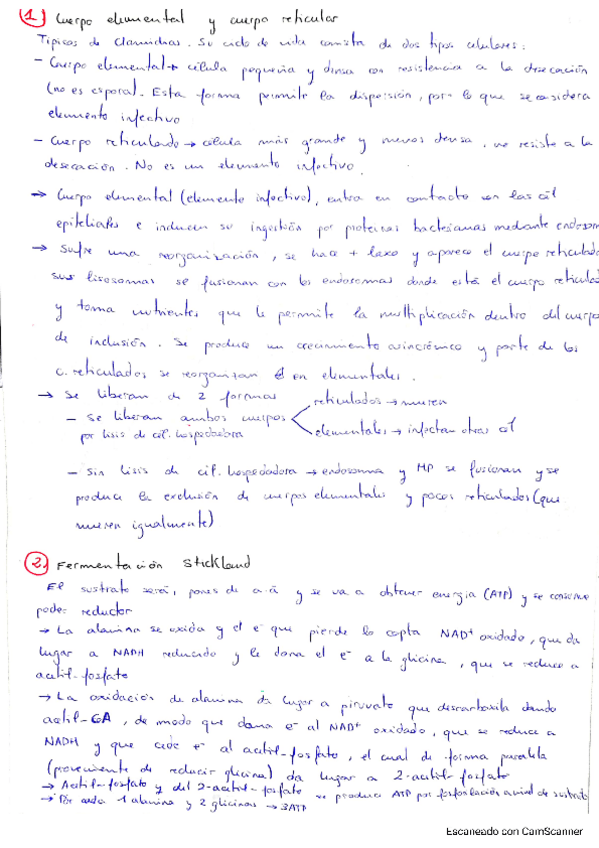 1) Cuerpo elemental y cuerpo reticular
Típicos de Clamidias. Su ciclo de vida consta de dos tipos celulares:
- Cuerpo elemental → célula pequeña y densa con resistencia a la desecación
(no es espora). Esta forma permite la dispersión, por lo que se considera
elemento infectivo
- Cuerpo reticulado → célula más grande y menos densa, no resiste a la
desecación. No es un elemento infectivo.
→ Cuerpo elemental (elemento infectivo), entra en contacto con las cél
epiteliales e inducen su ingestión por proteínas bacterianas mediante endosom
→ Sufre una reorganización, se hace + laxo y aparece el cuerpo reticulado
sus lisosomas se fusionan con los endosomas donde está el cuerpo reticulad
y toma nutrientes que le permite la multiplicación dentro del cuerpo
de inclusión. Se produce un crecimiento asincrónico y parte de los
c. reticulados se reorganizan en elementales.
→ Se liberan de 2 formas
reticulados → mueren
- Se liberan ambos cuerpos
por lisis de cél. hospedadora
elementales → infectan otras cél
- Sin lisis de cél. hospedadora → endosoma y MP se fusionan y se
produce la exclusión de cuerpos elementales y pocos reticulados (que
mueren igualmente)
2. Fermentación Stickland
El sustrato será, pares de a.a y se va a obtener energía (ATP) y se conserva
poder reductor
→ La alanina se oxida y el e⁻ que pierde lo capta NAD⁺ oxidado, que da
lugar a NADH reducido y le dona el e⁻ a la glicina, que se reduce a
acetil-fosfato
→ La oxidación de alanina da lugar a piruvato que descarboxila dando
acetil-CoA, de modo que dona e⁻ al NAD⁺ oxidado, que se reduce a
NADH y que cede e⁻ al acetil-fosfato, el cual de forma paralela
(proveniente de reducir glicina) da lugar a 2-acetil-fosfato
→ Acetil-fosfato y del 2-acetil-fosfato se produce ATP por fosforilación a nivel de sustrato
→ Por cada 1 alanina y 2 glicinas → 3ATP
Escaneado con CamScanner